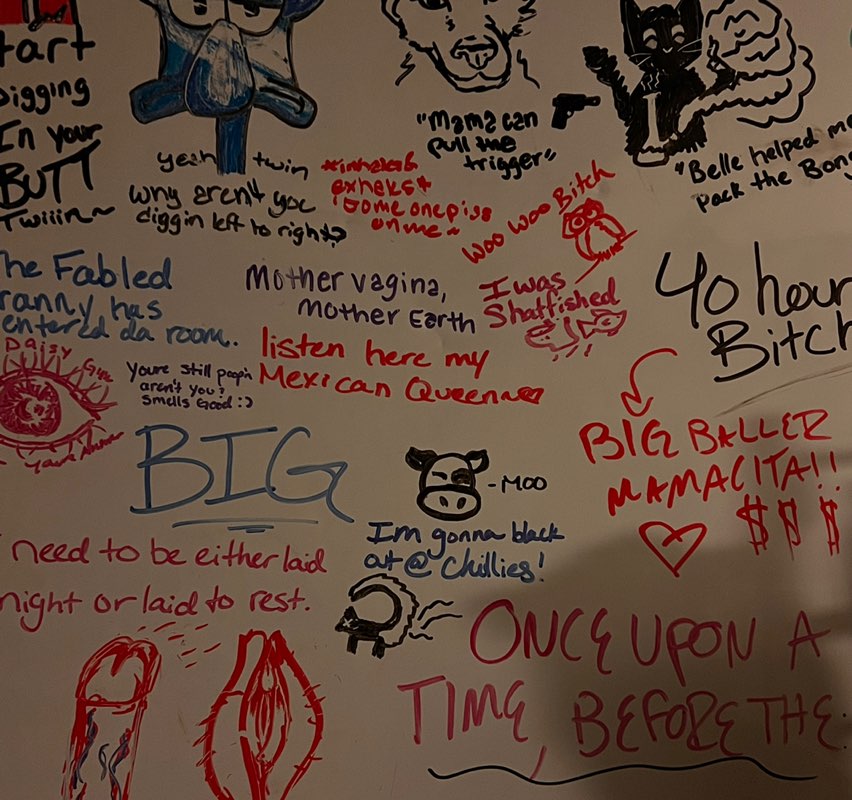 tart
Digging
In your
BUTT
Twiiin~
yeah twin
why aren't you
diggin left to right?
*inhales &
exhales*
"Someone piss
on me~
"Mama can
pull the
trigger"
woo woo Bitch
"Belle helped me
pack the Bong
The Fabled
ranny has
entered da room.
Mother vagina,
mother Earth
I was
Shatfished
40 hour
Bitch
Daisy Gir
Youre still poopin
aren't you?
Smells Good :)
listen here my
Mexican Queen
BIG
BIG BALLER
MAMACITA!!
$ $ $
-MOO
I'm gonna black
at @ Chillies!
I need to be either laid
night or laid to rest.
ONCE UPON A
TIME, BEFORE THE